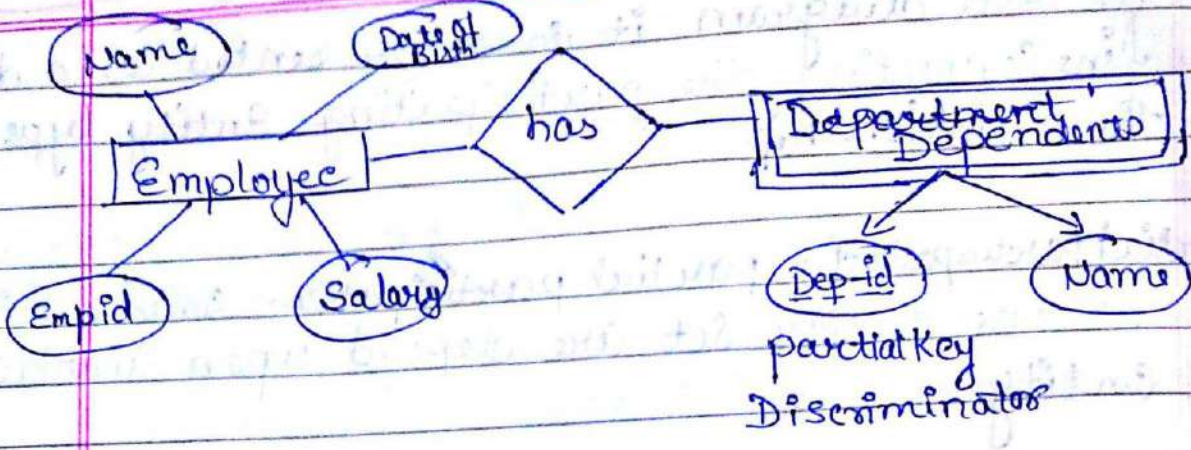 Name
Date of
Birth
has
Department
Dependents
Employee
Empid
Salary
Dep-id
Name
partial Key
Discriminator